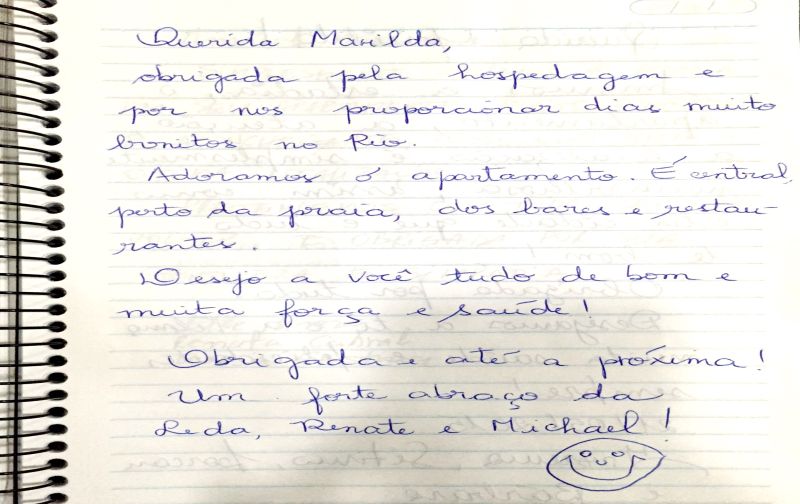 Querida Marilda,
obrigada pela hospedagem e
por nos proporcionar dias muito
bonitos no Rio.
Adoramos o apartamento. É central,
perto da praia, dos bares e restau-
rantes.
Desejo a você tudo de bom e
muita força e saúde!
Obrigada e até a próxima!
Um forte abraço da
Leda, Renate e Michael!